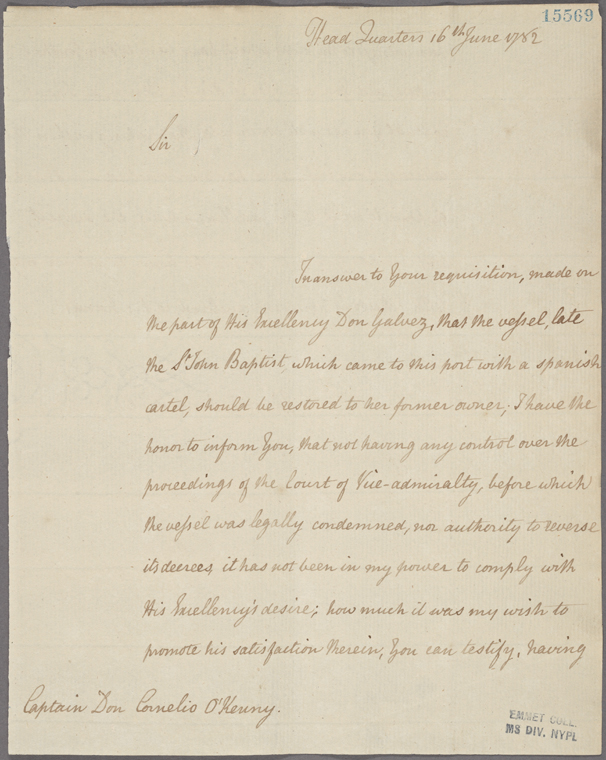 15569
Head Quarters 16th June 1782
Sir
In answer to Your requisition, made on
the part of His Excellency Don Galvez, that the vessel, late
the St John Baptist, which came to this port with a spanish
cartel, should be restored to her former owner; I have the
honor to inform You, that not having any control over the
proceedings of the Court of Vice-admiralty, before which
the vessel was legally condemned, nor authority to reverse
its decrees, it has not been in my power to comply with
His Excellency's desire; how much it was my wish to
promote his satisfaction therein, You can testify, having
Captain Don Cornelio O'Kenny.
EMMET COLL.
MS DIV. NYPL